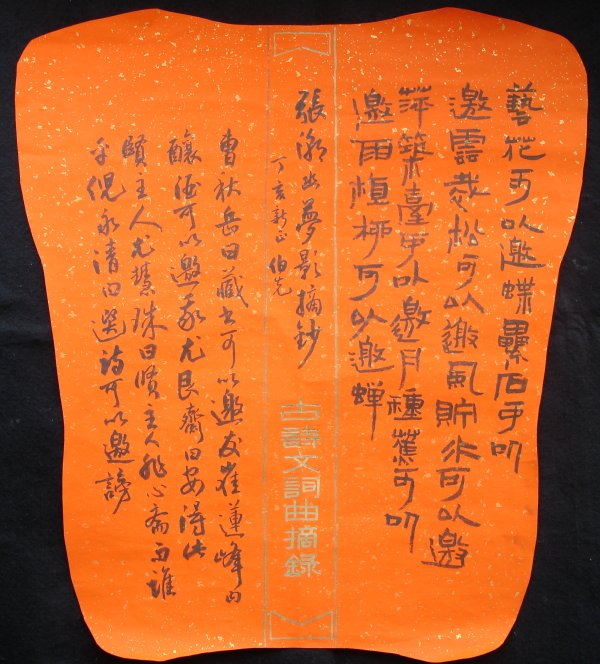 藝花可以邀蝶纍石可以
邀雲栽松可以邀風貯水可以邀
萍築臺可以邀月種蕉可以
邀雨植柳可以邀蟬
張潮幽夢影摘鈔
丁亥新正
古詩文詞曲摘錄
曹秋岳曰藏書可以邀友崔蓮峰曰
釀酒可以邀我尤艮齋曰安得此
賢主人尤慧珠曰賢主人非心齋而誰
乎倪永清曰選詩可以邀謗